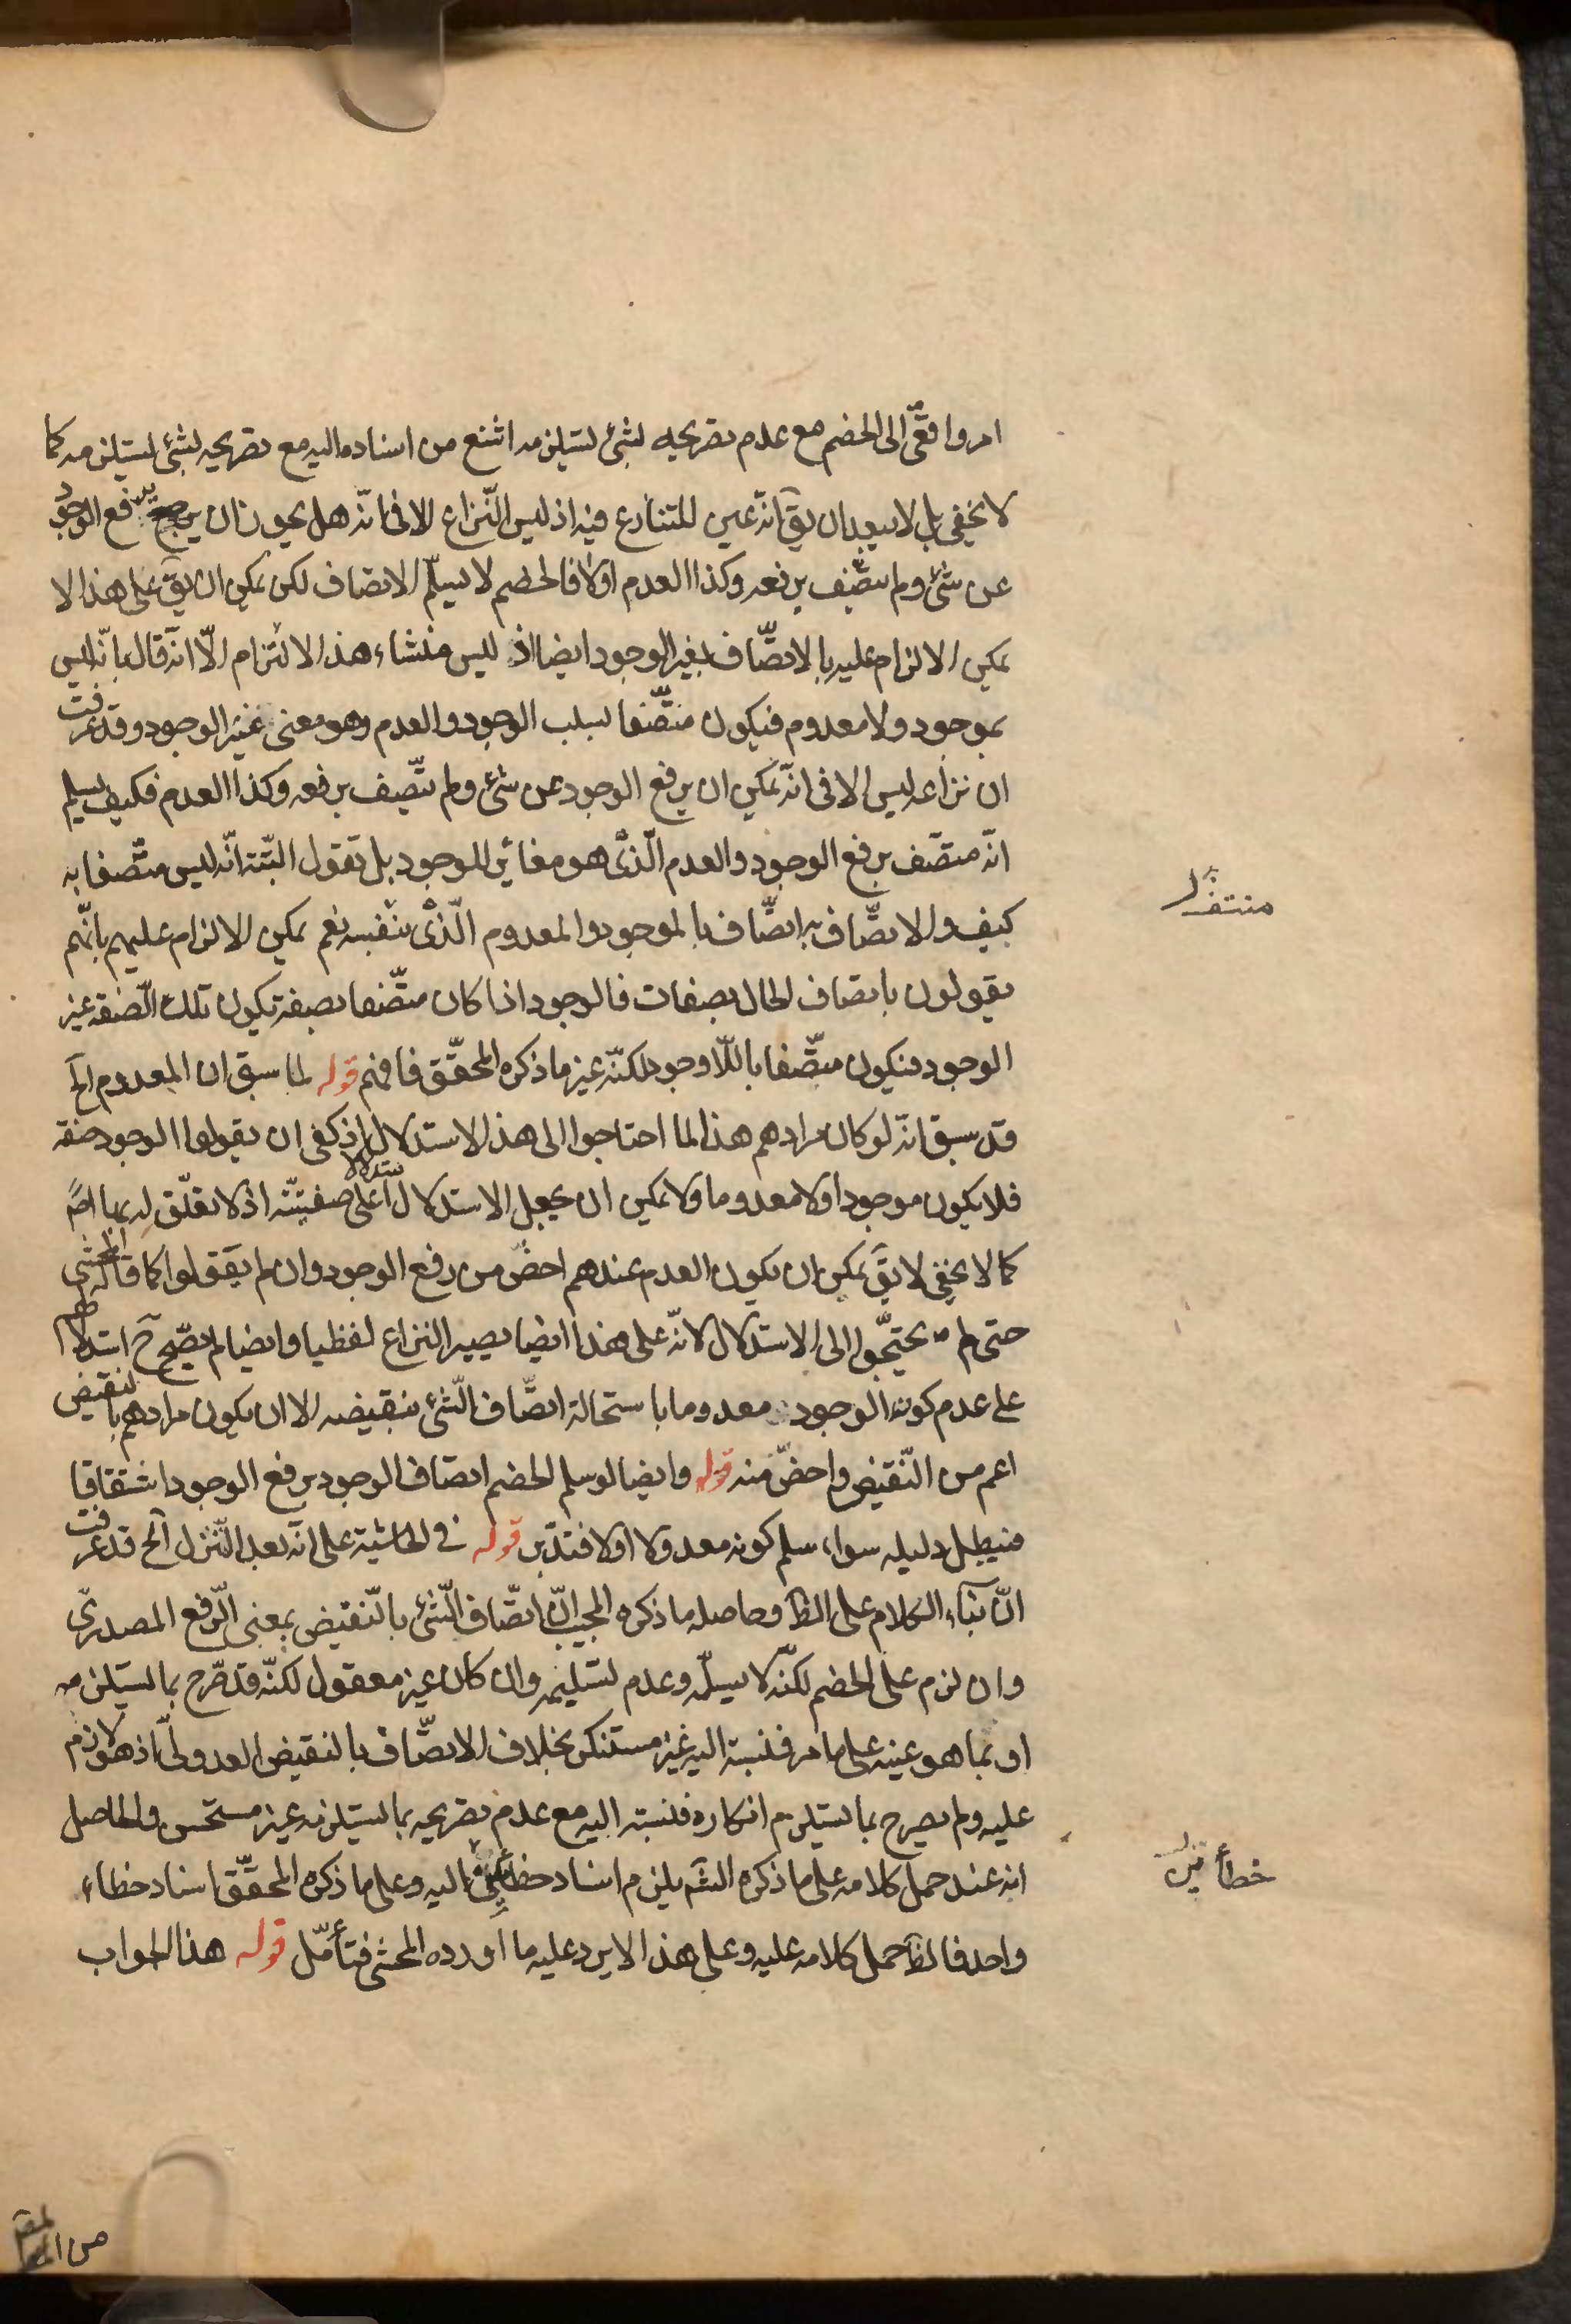 امر واقعّى الى الخصم مع عدم تصريحه لشئ يستلزمه اشنع من اسناده اليه مع تصريحه بشئ يستلزمه كما
لا يخفى بل لا يبعد ان يقٓ انّه عين المتنازع فيه اذ ليس النّزاع الا فى انّه هل يجوز ان يرفع الوجود
عن شئ ولم يتّصف برفعه وكذا العدم او لا فالخصم لا يسلّم الاتصاف لكن يمكن ان يقٓ على هذا لا
يمكن الالزام عليه بالاتصّاف بغير الوجود ايضا اذ ليس منشاء هذا الالتزام الّا انه قال بانّه ليس
بموجود ولا معدوم فيكون متّصفا بسلب الوجود والعدم وهو معنى غير الوجود وقد عرفت
ان نزاعه ليس الا فى انّه يمكن ان يرفع الوجود عن شئ ولم يتّصف برفعه وكذا العدم فكيف يسلم
انّه متصّف برفع الوجود والعدم الّذى هو مغاير للوجود بل تقول البتّة انّه ليس متّصفا به
كيف والاتصّاف به اتصّاف بالموجود والمعدوم الّذى بنفسه نعم يمكن الالزام عليهم بانّهم
يقولون باتصاف الحال بصفات فالوجود اذا كان متّصفا بصفة تكون تلك الصّفة غير
الوجود فيكون متّصفا باللّاوجود لكنّه غير ما ذكره المحقّق فافهم قوله لما سبق ان المعدوم الخ
قد سبق انّه لو كان مرادهم هذا لما احتاجوا الى هذا الاستدلال اذ كفى ان يقولوا الوجود صفة
فلا يكون موجودا ولا معدوما ولا يمكن ان يجعل الاستدلال استدلالا على صفتيّته اذ لا تعلّق له بها اصً
كما لا يخفى لا يقٓ يمكن ان يكون العدم عندهم اخصّ من رفع الوجود وان لم يعقلوا كما قاله المحشى
حتى لم يحتجّوا الى الاستدلال لانّه على هذا ايضا يصير النزاع لفظيا وايضا لم يصّح ح استدلالهم
على عدم كون الوجود معدوما باستحالة اتصّاف الشّئ بنقيضه الا ان يكون مرادهم بالنقيض
اعم من النّقيض واخصّ منه قوله وايضا لو سلم الخصم اتصاف الوجود برفع الوجود اشتقاقا
فيبطل دليله سواء سلم كونه معدولا او لا فتدّبر قوله فى الحاشية على انه بعد التّنزل الخ قد عرفت
انّ بناء الكلام على الظٓ وحاصله ما ذكره المجيب انّ اتصّاف الشّئ بالنّقيض بمعنى الرّفع المصدرىّ
وان لزم على الخصم لكنّه لا يسلّمه وعدم تسليمه وان كان غير معقول لكنّه قد صّرح بما يستلزمه
او بما هو عينه على ما مر فنسبته اليه غير مستنكر بخلاف الاتصّاف بالنقيض العدولىّ اذ هو لازم
عليه ولم يصرح بما يستلزم انكاره فنسبته اليه مع عدم تصريحه بما يستلزمه غير مستحسن والحاصل
انه عند حمل كلامه على ما ذكره الشٓم يلزم اسناد خطائين اليه وعلى ما ذكره المحقّق اسناد خطاء
واحد فالظٓ حمل كلامه عليه وعلى هذا لا يرد عليه ما اورده المحشى فتأمّل قوله هذا الجواب
خطأين